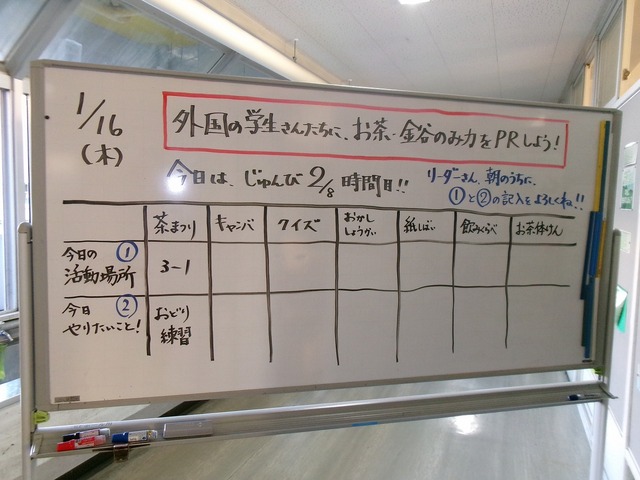 1/16
(木)
外国の学生さんたちに、お茶・金谷のみ力をPRしよう!
今日は、じゅんび2/8時間目!!
リーダーさん、朝のうちに、
①と②の記入をよろしくね!!
茶まつり キャンバ クイズ おかし しょうかい 紙しばい 飲みくらべ お茶体けん
今日の ①
活動場所 3-1
今日 ② おどり
やりたいこと! 練習